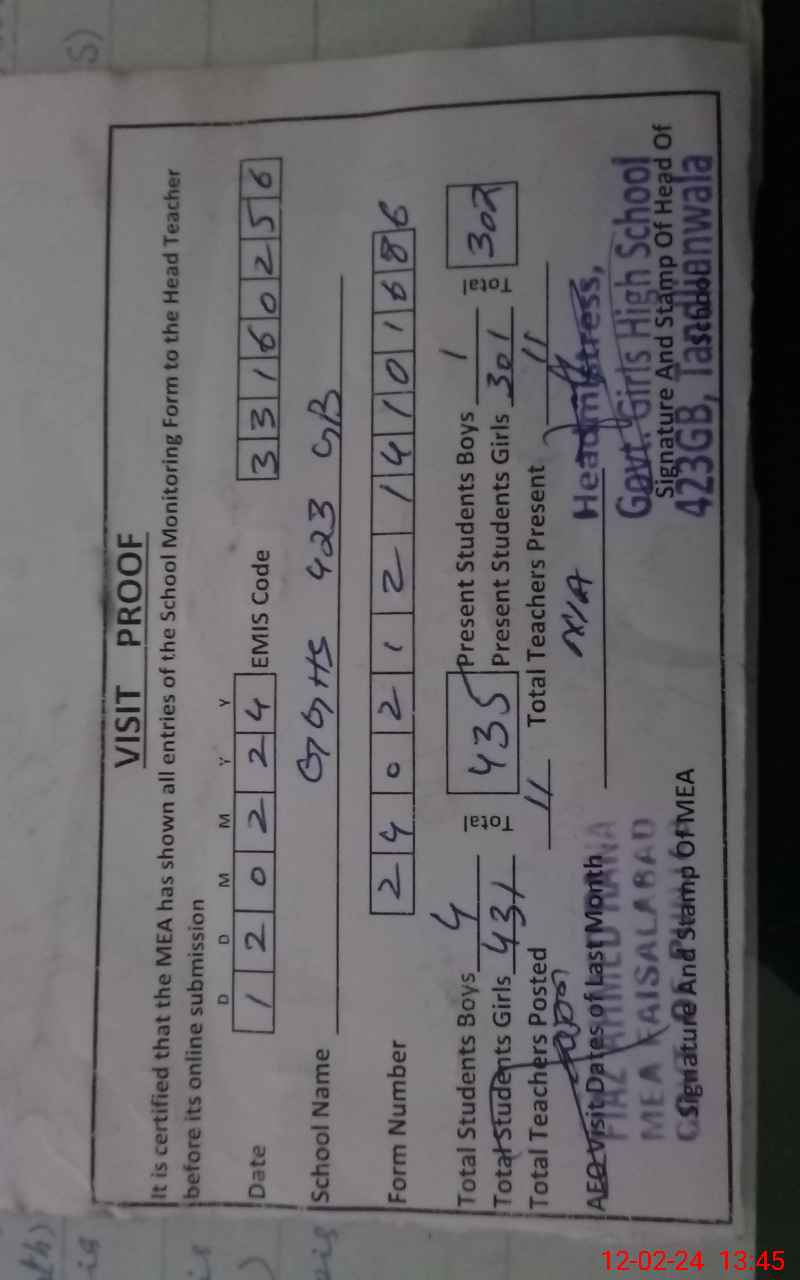 VISIT PROOF
It is certified that the MEA has shown all entries of the School Monitoring Form to the Head Teacher
before its online submission
D D M M Y Y
Date 1 2 0 2 2 4 EMIS Code 3 3 1 6 0 2 5 6
School Name GGHS 423 GB
Form Number 2 4 0 2 1 2 1 4 1 0 1 6 8 6
Total Students Boys 4 Total 435 Present Students Boys 1 Total 302
Total Students Girls 431 Present Students Girls 301
Total Teachers Posted 11 Total Teachers Present 11
AEO Visit Dates of Last Month N/A
Headmistress,
Govt. Girls High School
423GB, Tandlianwala
Signature And Stamp Of Head Of
School
AHMED RANA
MEA FAISALABAD
Signature And Stamp Of MEA
12-02-24 13:45